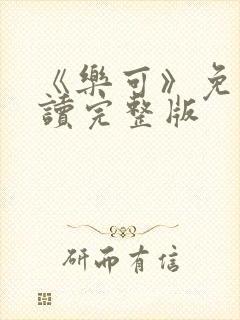 《樂可》免
讀完整版
研而有信